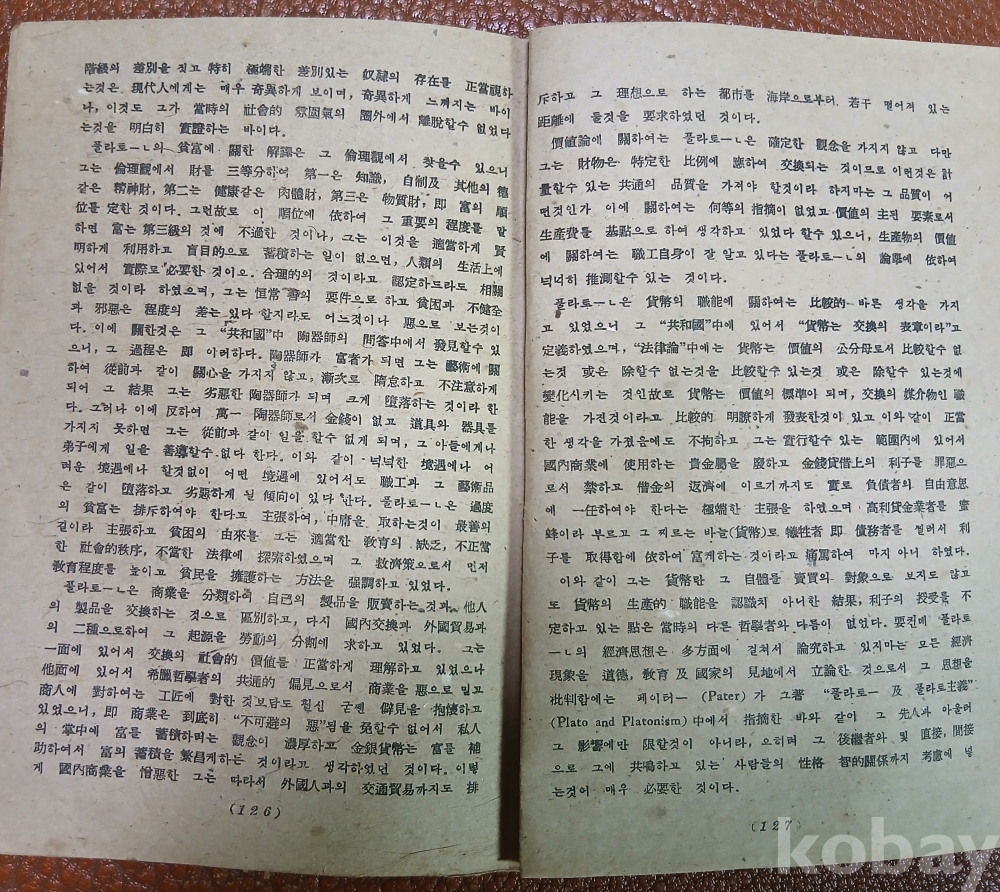 階級의 差別을 짓고 特히 極端한 差別있는 奴隷의 存在를 正當視하
는것은 現代人에게는 매우 奇異하게 보이며, 奇異하게 느껴지는 바이
나, 이것도 그가 當時의 社會的 雰圍氣의 圈外에서 離脫할수 없었다
는것을 明白히 實證하는 바이다.
플라토ー느의 貧富에 關한 解譯은 그 倫理觀에서 찾을수 있으니
그는 倫理觀에서 財를 三等分하여 第一은 知識, 自制及 其他의 德
같은 精神財, 第二는 健康같은 肉體財, 第三은 物質財, 即 富의 順
位를 定한 것이다. 그런故로 이 順位에 依하여 그 重要의 程度를 말
하면 富는 第三級의 것에 不過한 것이나, 그는 이것을 適當하게 賢
明하게 利用하고 盲目的으로 蓄積하는 일이 없으면, 人類의 生活上에
있어서 實際로 必要한 것이오. 合理的의 것이라고 認定하드라도 相關
없을 것이라 하였으며, 그는 恒常 善의 要件으로 하고 貧困과 不健全
과 邪惡은 程度의 差는 있다 할지라도 어느것이나 惡으로 보는것이
다. 이에 關한것은 그 “共和國”中 陶器師의 問答中에서 發見할수 있
으니, 그 過程은 即 이러하다. 陶器師가 富者가 되면 그는 藝術에 關
하여 從前과 같이 關心을 가지지 않고, 漸次로 隋怠하고 不注意하게
되어 그 結果 그는 劣惡한 陶器師가 되며 크게 墮落하는 것이라 한
다. 그러나 이에 反하여 萬一 陶器師로서 金錢이 없고 道具와 器具를
가지지 못하면 그는 從前과 같이 일을 할수 없게 되며, 그 아들에게나
弟子에게 일을 善導할수 없다 한다. 이와 같이 넉넉한 境遇에나 어
려운 境遇에나 할것없이 어떤 境過에 있어서도 職工과 그 藝術品
은 같이 墮落하고 劣惡하게 될 傾向이 있다 한다. 플라토ー느은 過度
의 貧富는 排斥하여야 한다고 主張하여, 中庸을 取하는것이 最善의
길이라 主張하고 貧困의 由來를 그는 適當한 敎育의 缺乏, 不正當
한 社會的秩序, 不當한 法律에 探索하였으며 그 救濟策으로서 먼저
敎育程度를 높이고 貧民을 擁護하는 方法을 强調하고 있었다.
플라토ー느은 商業을 分類하여 自己의 製品을 販賣하는것과 他人
의 製品을 交換하는 것으로 區別하고, 다시 國內交換과 外國貿易과
의 二種으로하여 그 起源을 勞動의 分割에 求하고 있었다. 그는
一面에 있어서 交換의 社會的 價値를 正當하게 理解하고 있었으나
他面에 있어서 希臘哲學者의 共通的 偏見으로서 商業을 惡으로 밀고
商人에 對하여는 工匠에 對한 것보담도 훨신 굳쎈 僻見을 抱懷하고
있었으니, 即 商業은 到底히 “不可避의 惡”됨을 免할수 없어서 私人
의 掌中에 富를 蓄積하려는 觀念이 濃厚하고 金銀貨幣는 富를 補
助하여서 富의 蓄積을 繁昌케하는 것이라고 생각하였던 것이다. 이렇
게 國內商業을 憎惡한 그는 따라서 外國人과의 交通貿易까지도 排
(126)
斥하고 그 理想으로 하는 都市를 海岸으로부터, 若干 떨어져 있는
距離에 둘것을 要求하였던 것이다.
價値論에 關하여는 플라토ー느은 確定한 觀念을 가지지 않고 다만
그는 財物은 特定한 比例에 應하여 交換되는 것이므로 이런것은 計
量할수 있는 共通의 品質을 가져야 할것이라 하지마는 그 品質이 어
떤것인가 이에 關하여는 何等의 指摘이 없었고 價値의 主된 要素로서
生產費를 基點으로 하여 생각하고 있었다 할수 있으니, 生產物의 價値
에 關하여는 職工自身이 잘 알고 있다는 플라토ー느의 論擧에 依하여
넉넉히 推測할수 있는 것이다.
플라토ー느은 貨幣의 職能에 關하여는 比較的 바른 생각을 가지
고 있었으니 그 “共和國”中에 있어서 “貨幣는 交換의 表章이라”고
定義하였으며, “法律論”中에는 貨幣는 價値의 公分母로서 比較할수 없
는것 或은 除할수 없는것을 比較할수 있는것 或은 除할수 있는것에
變化시키는 것인故로 貨幣는 價値의 標準이 되며, 交換의 媒介物인 職
能을 가진것이라고 比較的 明瞭하게 發表한것이 있고 이와 같이 正當
한 생각을 가졌음에도 不拘하고 그는 實行할수 있는 範圍內에 있어서
國內商業에 使用하는 貴金屬을 廢하고 金錢貸借上의 利子를 罪惡으
로서 禁하고 借金의 返濟에 이르기까지도 實로 負債者의 自由意思
에 一任하여야 한다는 極端한 主張을 하였으며 高利貸金業者를 蜜
蜂이라 부르고 그 찌르는 바늘(貨幣)로 犧牲者 即 債務者를 찔러서 利
子를 取得함에 依하여 富케하는 것이라고 痛罵하여 마지 아니 하였다.
이와 같이 그는 貨幣만 그 自體를 賣買의 對象으로 보지도 않고
도 貨幣의 生產的 職能을 認識치 아니한 結果, 利子의 授受를 不
定하고 있는 點은 當時의 다른 哲學者와 다름이 없었다. 要컨데 플라토
ー느의 經濟思想은 多方面에 걸쳐서 論究하고 있지마는 모든 經濟
現象을 道德, 敎育 及 國家의 見地에서 立論한 것으로서 그 思想을
批判함에는 페이터ー (Pater) 가 그著 “플라토ー 及 플라토主義”
(Plato and Platonism) 中에서 指摘한 바와 같이 그 先人과 아울러
그 影響에만 限할것이 아니라, 으히려 그 後繼者와 및 直接, 間接
으로 그에 共鳴하고 있는 사람들의 性格 智的關係까지 考慮에 넣
는것이 매우 必要한 것이다.
(127)
kobay